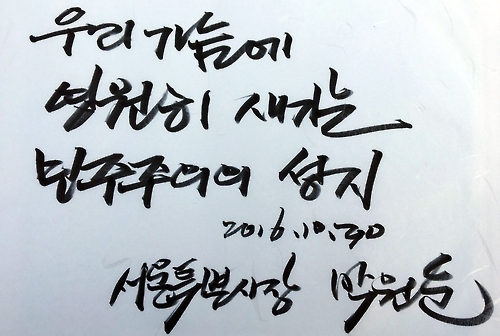 우리 가슴에
영원히 새기는
민주주의의 성지
2016.10.30
서울특별시장 박원순